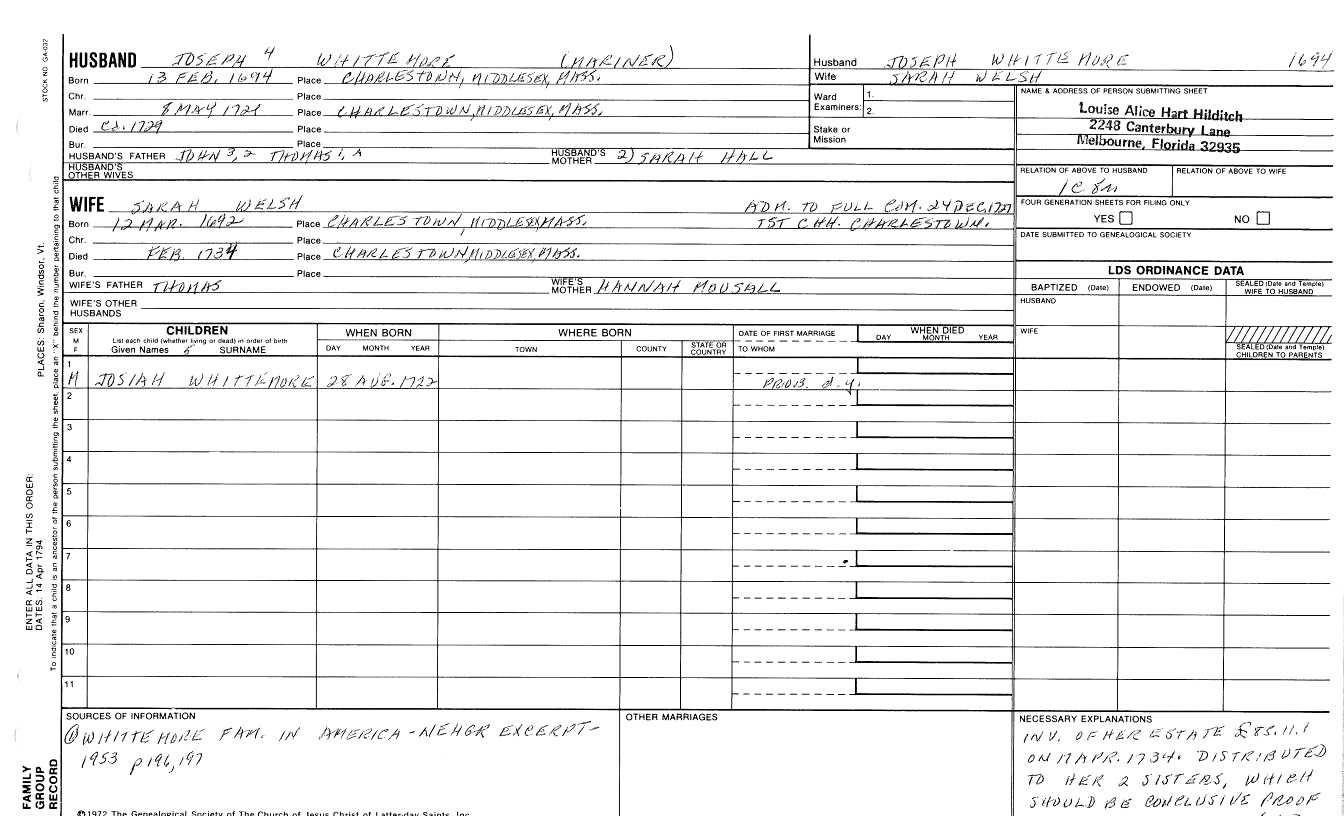 STOCK NO. GA-037
HUSBAND JOSEPH 4 WHITTEMORE (MARINER)
Born 13 FEB. 1694 Place CHARLESTOWN, MIDDLESEX, MASS.
Chr. Place
Marr. 8 MAY 1721 Place CHARLESTOWN, MIDDLESEX, MASS.
Died Ca. 1729 Place
Bur. Place
HUSBAND'S FATHER JOHN 3, 2 THOMAS 1, A HUSBAND'S MOTHER 2) SARAH HALL
HUSBAND'S OTHER WIVES
Husband JOSEPH WHITTEMORE 1694
Wife SARAH WELSH
Ward Examiners: 1.
2.
Stake or Mission
NAME & ADDRESS OF PERSON SUBMITTING SHEET
Louise Alice Hart Hilditch
2248 Canterbury Lane
Melbourne, Florida 32935
RELATION OF ABOVE TO HUSBAND RELATION OF ABOVE TO WIFE
1C 8R
FOUR GENERATION SHEETS FOR FILING ONLY
YES NO
DATE SUBMITTED TO GENEALOGICAL SOCIETY
WIFE SARAH WELSH ADM. TO FULL COM. 24 DEC, 1727
Born 12 MAR. 1692 Place CHARLESTOWN, MIDDLESEX, MASS. 1ST CHH. CHARLESTOWN.
Chr. Place
Died FEB. 1734 Place CHARLESTOWN, MIDDLESEX, MASS.
Bur. Place
WIFE'S FATHER THOMAS WIFE'S MOTHER HANNAH MOUSALL
WIFE'S OTHER HUSBANDS
LDS ORDINANCE DATA
BAPTIZED (Date) ENDOWED (Date) SEALED (Date and Temple) WIFE TO HUSBAND
HUSBAND
WIFE
SEALED (Date and Temple) CHILDREN TO PARENTS
SEX M F
CHILDREN
List each child (whether living or dead) in order of birth
Given Names 5 SURNAME
WHEN BORN
DAY MONTH YEAR
WHERE BORN
TOWN COUNTY STATE OR COUNTRY
DATE OF FIRST MARRIAGE
TO WHOM
WHEN DIED
DAY MONTH YEAR
1
M JOSIAH WHITTEMORE 28 AUG. 1722 PROB. d.y.
2
3
4
5
6
7
8
9
10
11
SOURCES OF INFORMATION
① WHITTEMORE FAM. IN AMERICA - NEHGR EXCERPT-
1953 p 196, 197
OTHER MARRIAGES
NECESSARY EXPLANATIONS
INV. OF HER ESTATE £85.11.1
ON 17 APR. 1734. DISTRIBUTED
TO HER 2 SISTERS, WHICH
SHOULD BE CONCLUSIVE PROOF
©1972 The Genealogical Society of The Church of Jesus Christ of Latter-day Saints, Inc.
FAMILY GROUP RECORD
ENTER ALL DATA IN THIS ORDER:
DATES: 14 Apr 1794
PLACES: Sharon, Windsor, Vt.
To indicate that a child is an ancestor of the person submitting the sheet, place an "X" behind the number pertaining to that child